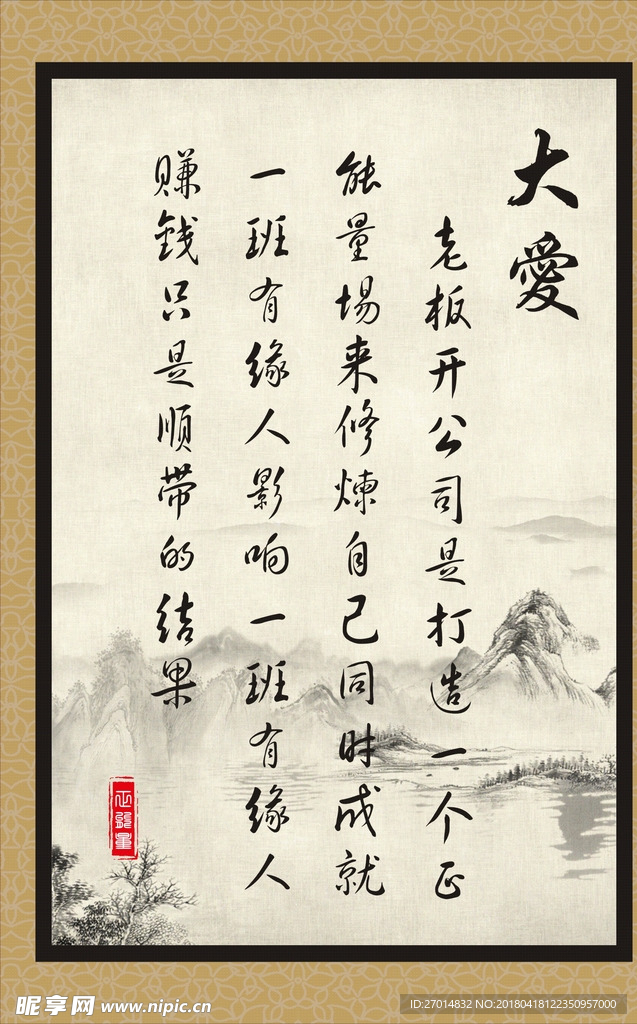 大愛
老板开公司是打造一个正
能量場来修煉自己同时成就
一班有缘人影响一班有缘人
赚錢只是顺带的结果
正能量
昵享网 www.nipic.cn
ID:27014832 NO:20180418122350957000